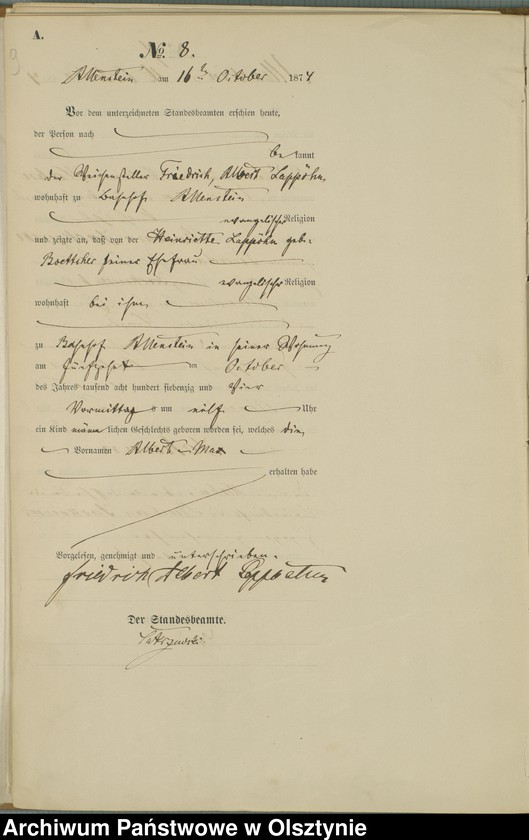 A.
No. 8.
Allenstein am 16ten October 1874.
Vor dem unterzeichneten Standesbeamten erschien heute,
der Person nach
bekannt
der Weichensteller Friedrich, Albert Lappöhn
wohnhaft zu Bahnhof Allenstein
evangelischer Religion
und zeigte an, daß von der Henriette Lappöhn geb.
Boettcher seiner Ehefrau
evangelischer Religion
wohnhaft bei ihm
zu Bahnhof Allenstein in seiner Wohnung
am fünfzehnten October
des Jahres tausend acht hundert siebenzig und vier
Vormittags um Uhr
ein Kind männlichen Geschlechts geboren worden sei, welches die
Vornamen Albert Max
erhalten habe
Vorgelesen, genehmigt und unterschrieben.
Friedrich Albert
Der Standesbeamte.
Archiwum Państwowe w Olsztynie